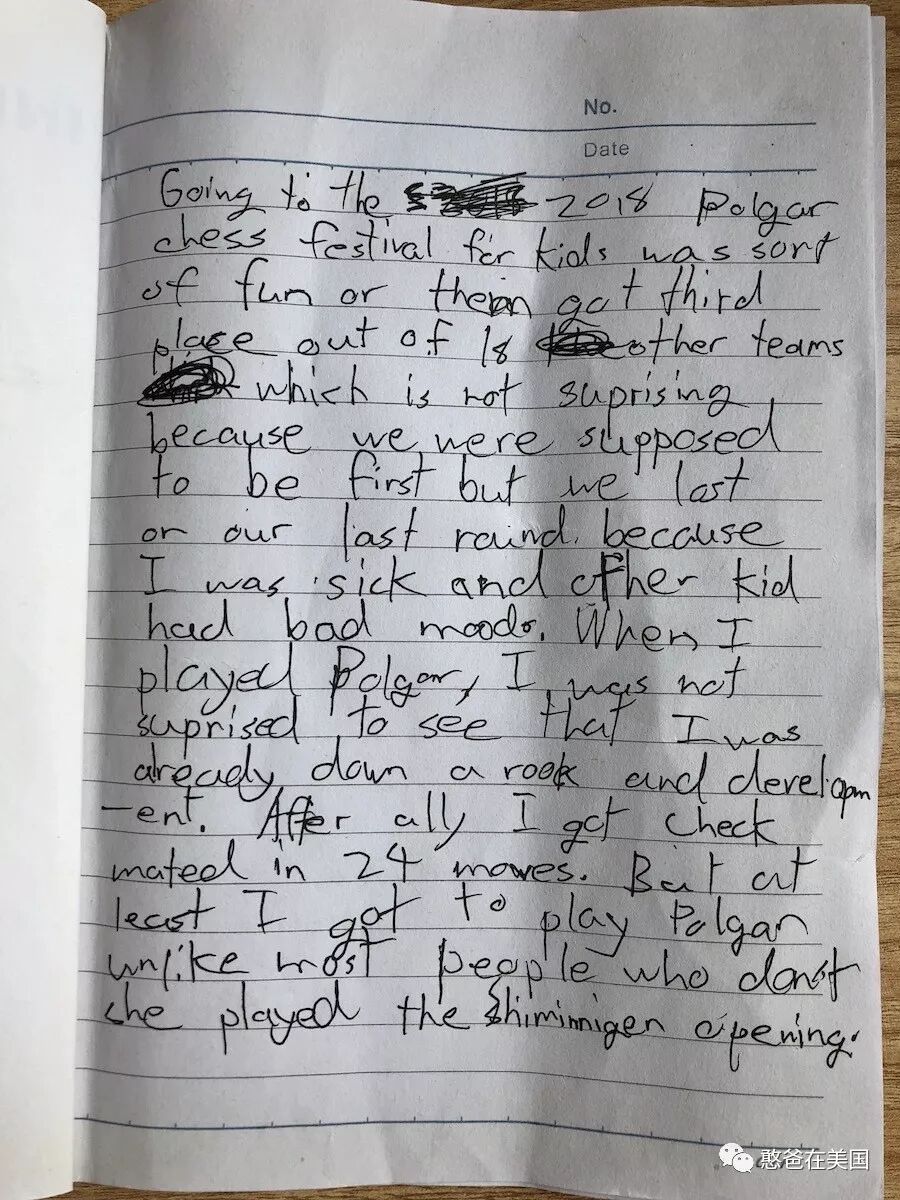 No.
Date
Going to the 2018 Polgar
chess festival for kids was sort
of fun or got third
place out of 18 other teams
which is not suprising
because we were supposed
to be first but we lost
on our last round because
I was sick and other kid
had bad moods. When I
played Polgar, I was not
suprised to see that I was
already down a rook and developm
-ent. After all, I got check
mated in 24 moves. But at
least I got to play Polgar
unlike most people who donot
she played the opening.
憨爸在美国